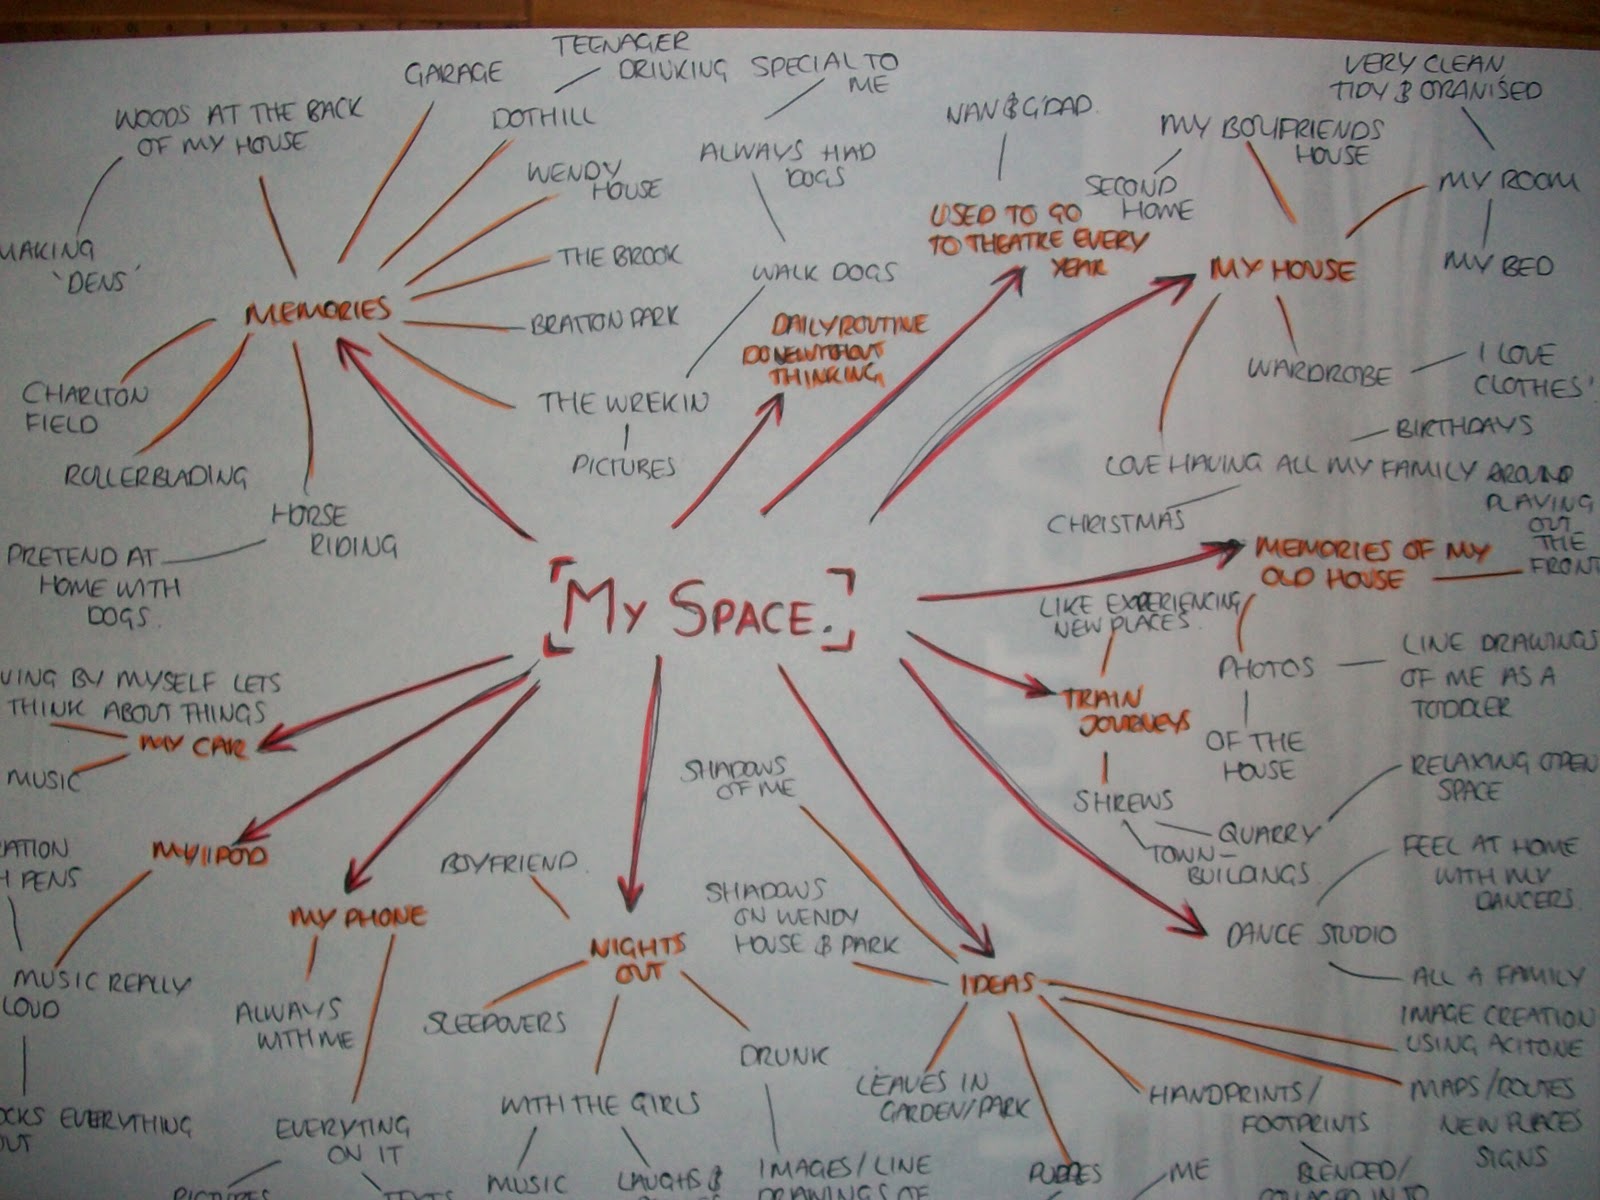 [MY SPACE.]
MEMORIES
WOODS AT THE BACK
OF MY HOUSE
MAKING
'DENS'
GARAGE
DOTHILL
TEENAGER
DRINKING
WENDY
HOUSE
THE BROOK
BRATTON PARK
THE WREKIN
PICTURES
WALK DOGS
ALWAYS HAD
DOGS
SPECIAL TO
ME
HORSE
RIDING
PRETEND AT
HOME WITH
DOGS.
ROLLERBLADING
CHARLTON
FIELD
DAILY ROUTINE
DONE WITHOUT
THINKING
USED TO GO
TO THEATRE EVERY
YEAR
NAN & G'DAD.
MY HOUSE
MY BOYFRIENDS
HOUSE
SECOND
HOME
MY ROOM
VERY CLEAN
TIDY & ORANISED
MY BED
WARDROBE
I LOVE
CLOTHES'
LOVE HAVING ALL MY FAMILY AROUND
BIRTHDAYS
CHRISTMAS
MEMORIES OF MY
OLD HOUSE
PLAYING
OUT
THE
FRONT
PHOTOS
LINE DRAWINGS
OF ME AS A
TODDLER
OF THE
HOUSE
TRAIN
JOURNEYS
LIKE EXPERIENCING
NEW PLACES.
SHREWS
QUARRY
RELAXING OPEN
SPACE
TOWN-
BUILDINGS.
DANCE STUDIO
FEEL AT HOME
WITH MY
DANCERS.
ALL A FAMILY
IDEAS
SHADOWS
OF ME
SHADOWS
ON WENDY
HOUSE & PARK
LEAVES IN
GARDEN/PARK
ME
HANDPRINTS/
FOOTPRINTS
BLENDED/
IMAGE CREATION
USING ACITONE
MAPS/ROUTES
NEW PLACES
SIGNS
NIGHTS
OUT
BOYFRIEND.
SLEEPOVERS
WITH THE GIRLS
MUSIC
LAUGHS &
DRUNK
IMAGES/LINE
DRAWINGS OF
MY PHONE
ALWAYS
WITH ME
EVERYTING
ON IT
PICTURES
TEXTS
MY IPOD
MUSIC REALLY
LOUD
OCKS EVERYTHING
OUT
ATION
H PENS
MY CAR
VING BY MYSELF LETS
THINK ABOUT THINGS
MUSIC